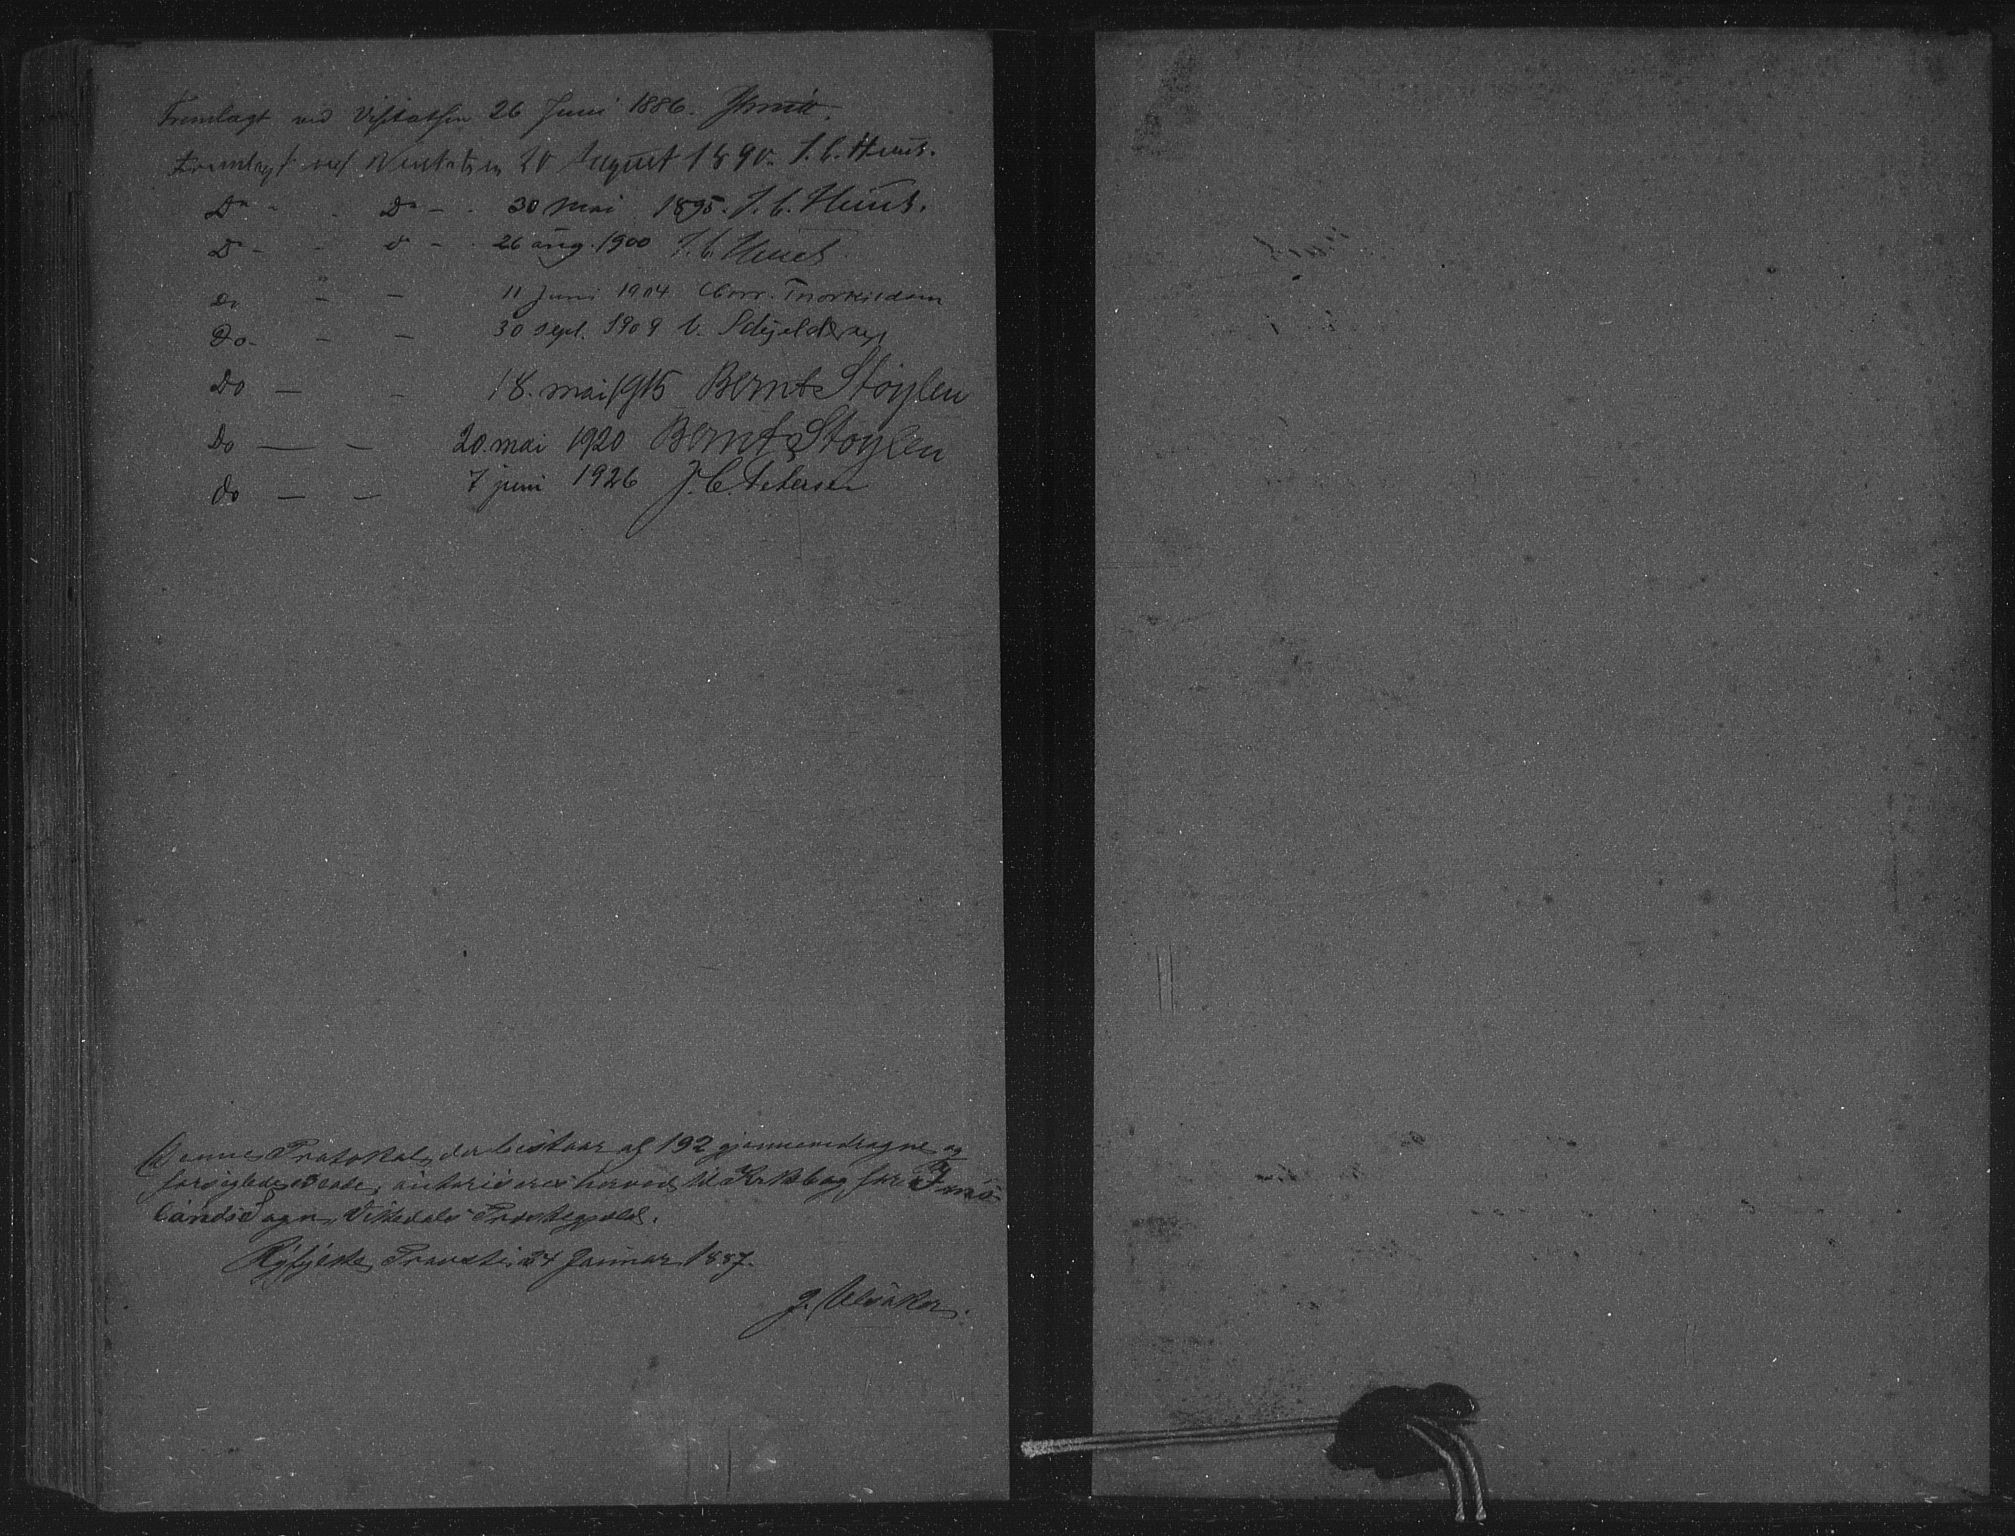 Fremlagt ved Visitatsen 26 Juni 1886.
Fremlagt ved Visitatsen 20 August 1890. J. C. Heuch.
Do - - Do - - 30 Mai 1895. J. C. Heuch.
Do - - d - - 26 aug. 1900 J. C. Heuch
Do " - - 11 Juni 1904 Chr. Thorkildsen
Do. - - 30 sept. 1909 Schjelderup
Do - - 18. mai 1915 Bernt Støylen
Do - - 20. mai 1920 Bernt Støylen
do - - 7 juni 1926 J. C. Petersen
Denne Protokol, der bestaar af 192 gjennemdragne og
forseglede Blade, autoriseres herved til Kirkebog for Ims-
lands Sogn, Vikedals Præstegjæld.
Ryfylke Provsti 24 Januar 1887.